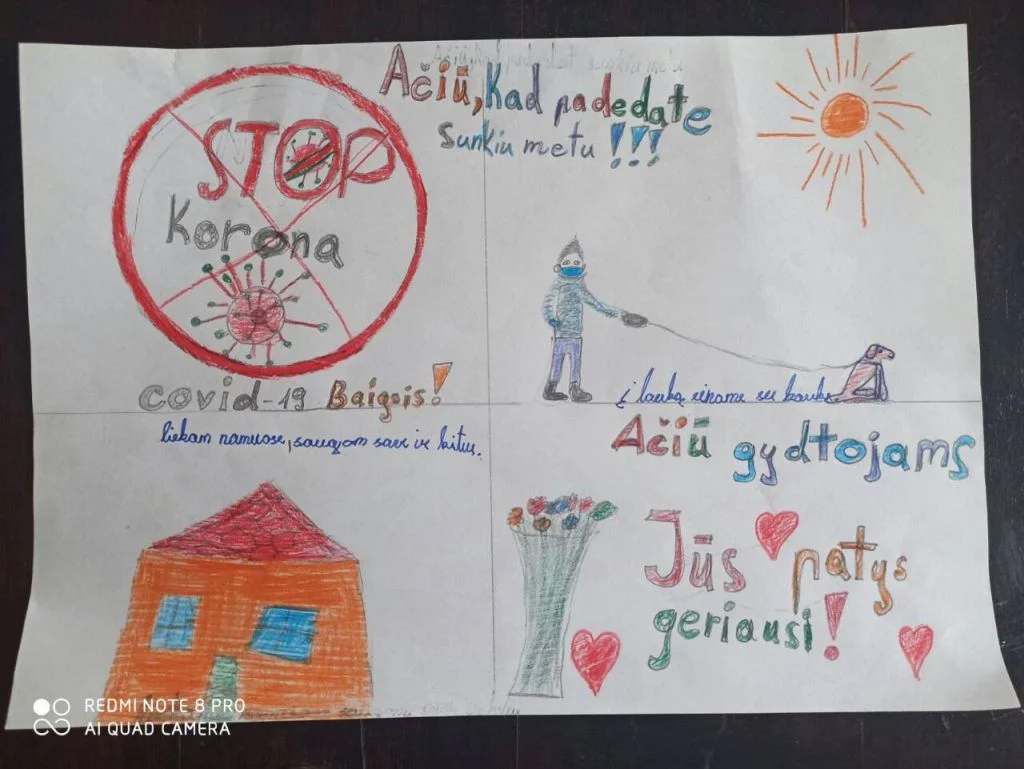 Ačiū, kad padedate
sunkiu metu !!!
STOP
Korona
covid-19 Baigsis!
į lauką einame su kauke
liekam namuose, saugom save ir kitus.
Ačiū gydtojams
Jūs patys
geriausi!
REDMI NOTE 8 PRO
AI QUAD CAMERA